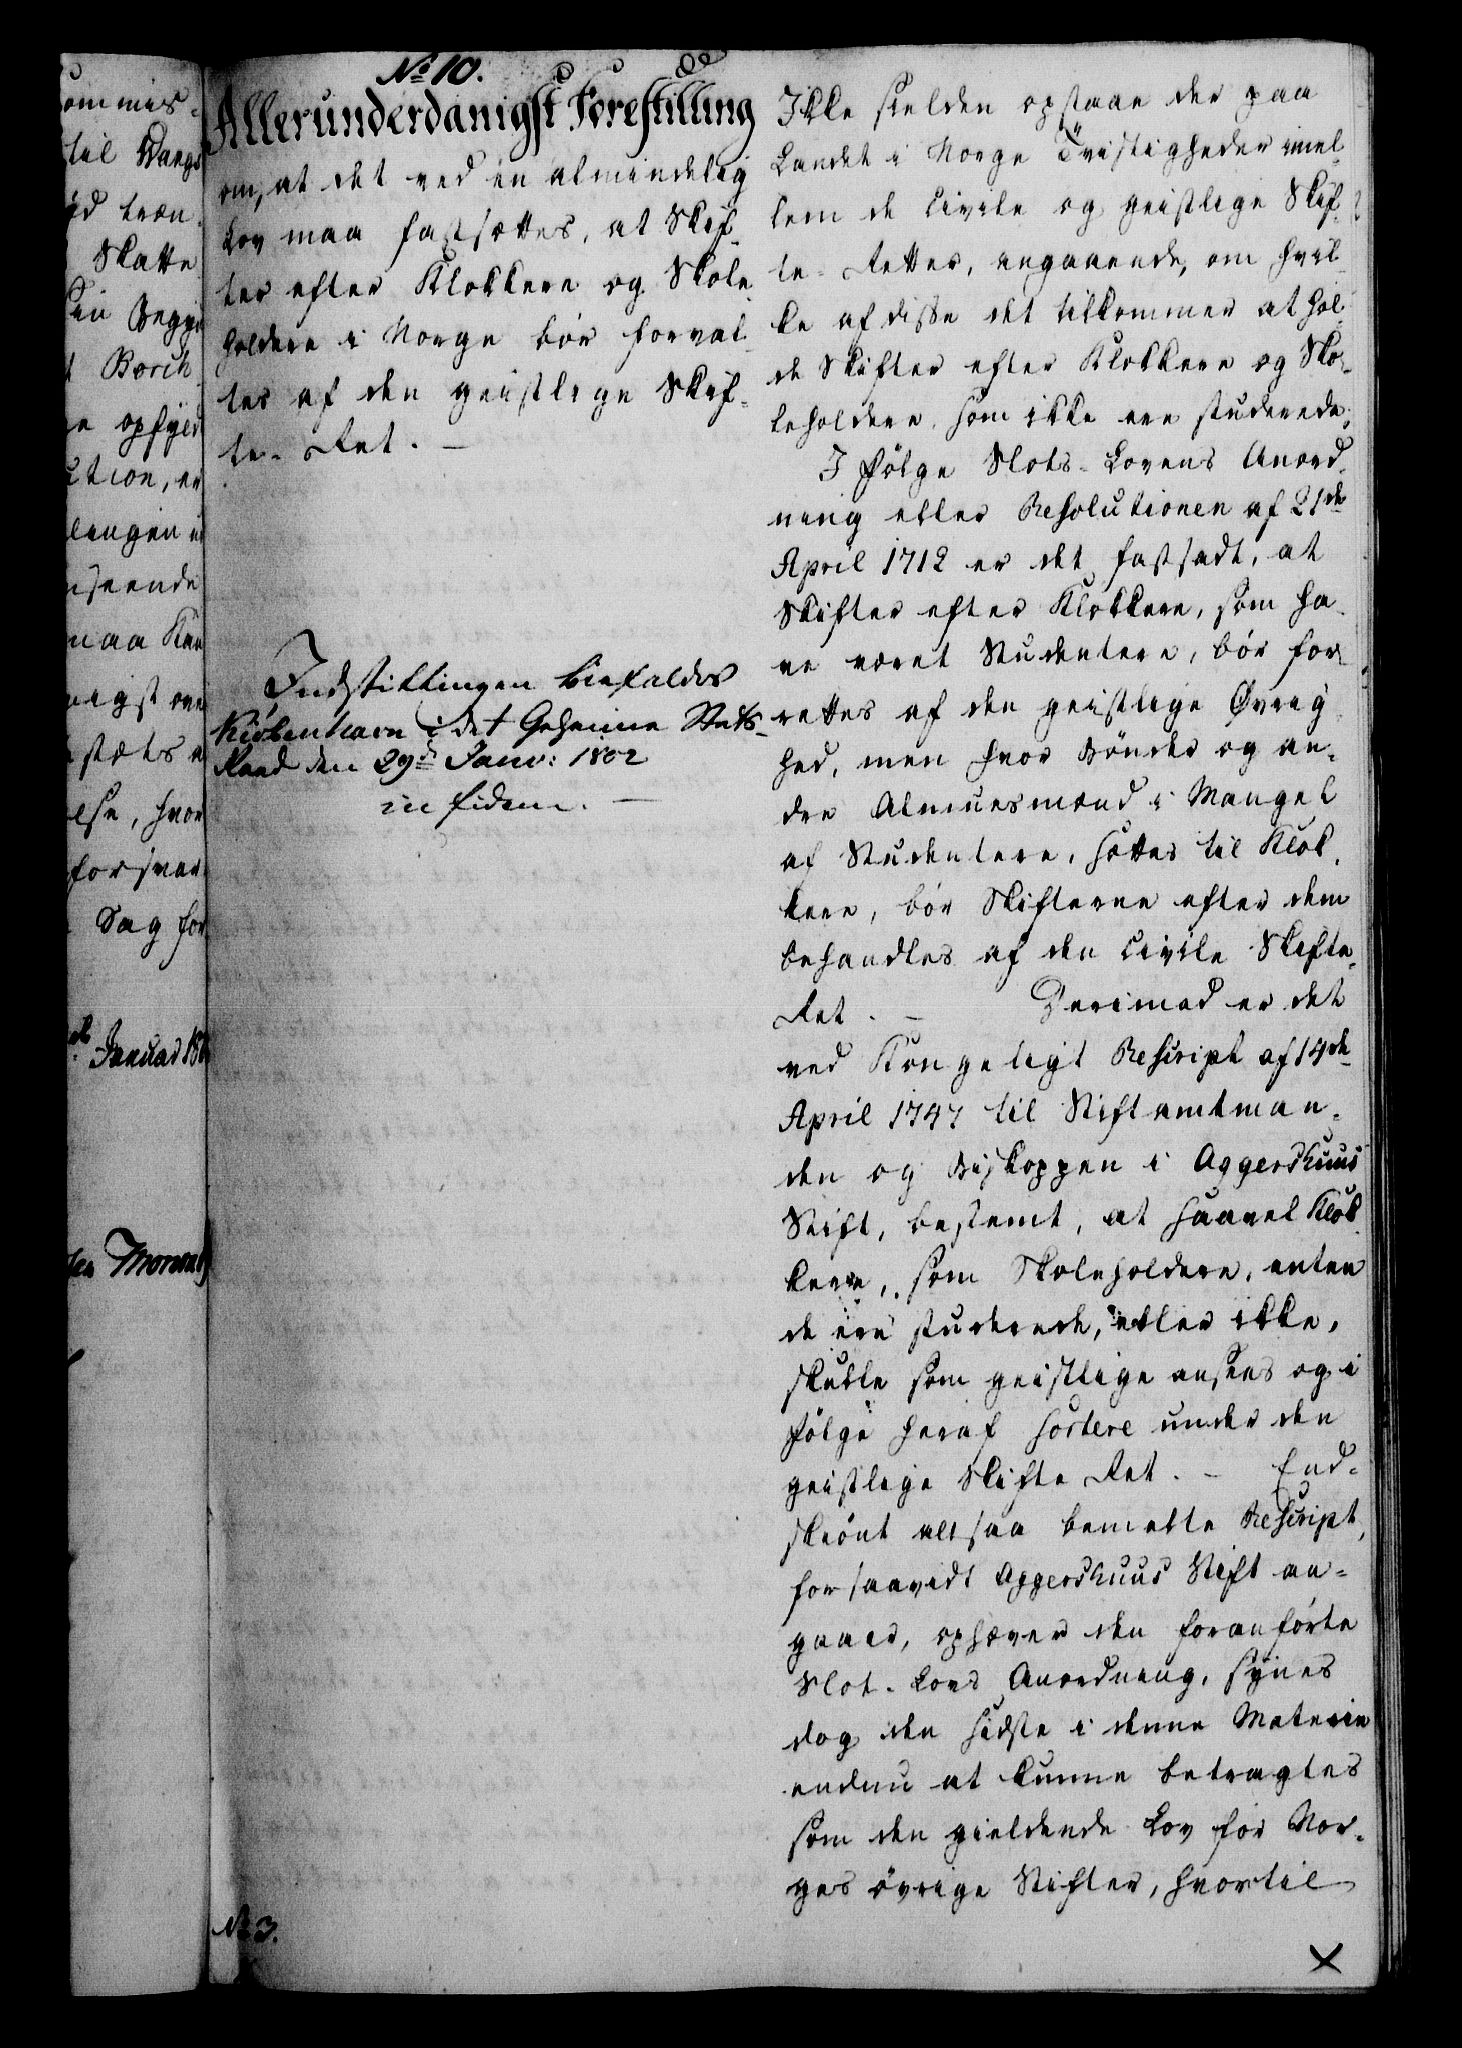 No 10.
Allerunderdanigst Forestilling
om, at det ved en almindelig
Lov maa fastsættes, at Skif-
ter efter Klokkere og Skole
holdere i Norge bør forval-
tes af den geistlige Skif-
te-Ret. -
Indstillingen bifaldes
Kiøbenhavn i det Geheime Stats-
Raad den 29d Janv: 1802
in fidem. -
No 3.
Ikke sielden opstaae der paa
Landet i Norge Tvistigheder imel-
lem de Civile og geistlige Skif-
te-Retter, angaaende, om hvil-
ke af disse det tilkommer at hol-
de Skifter efter Klokkere og Sko-
leholdere, som ikke ere studerede;
I følge Slots-Lovens Anord-
ning eller Resolutionen af 21de
April 1712 er det fastsadt, at
Skifter efter Klokkere, som ha-
ve været Studentere, bør for-
rettes af den geistlige Øvrig-
hed, men hvor Bönder og an-
dre Almuesmænd i Mangel
af Studentere, sættes til Klok-
kere, bör Skifterne efter dem
behandles af den Civile Skifte-
Ret. - Derimod er det
ved Kongeligt Rescript af 14de
April 1747 til Stiftamtman-
den og Biskoppen i Aggershuus
Stift, bestemt, at saavel Klok-
kere, som Skoleholdere, enten
de ere studerede, eller ikke,
skulle som geistlige ansees og i
følge heraf sortere under den
geistlige Skifte Ret. - End-
skiönt altsaa bemelte Rescript,
forsaavidt Aggershuus Stift an-
gaaer, ophæver den foranförte
Slot-Lovs Anordning, synes
dog den sidste i denne Materie
endnu at kunne betragtes
som den gieldende Lov for Nor-
ges övrige Stifter, hvortil
ommis-
til Vangs
træn-
Skatte
Borch
opfyld
ution, er
lingen
nseende
maa
else, hvor
forsvar
Sag for
Januar 180